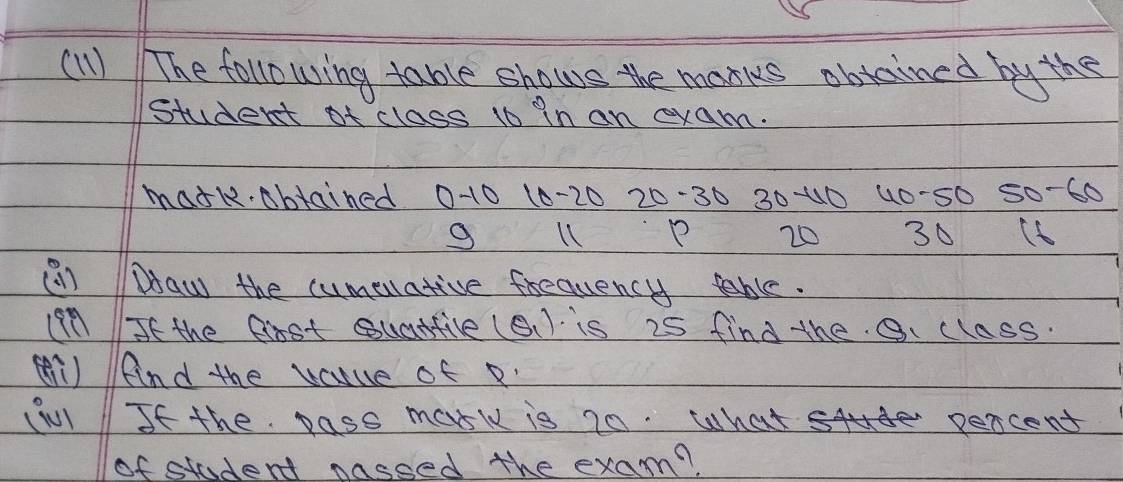 (11) The following table shows the marks obtained by the
Student of class 10 in an exam.
mark. obtained 0-10 10-20 20-30 30-40 40-50 50-60
9 11 P 20 30 16
(i) Draw the cumulative frequency table.
(ii) If the first Quartile (Q1) is 25 find the Q1 class.
(iii) find the value of P.
(iv) If the pass mark is 20. what percent
of student passed the exam?